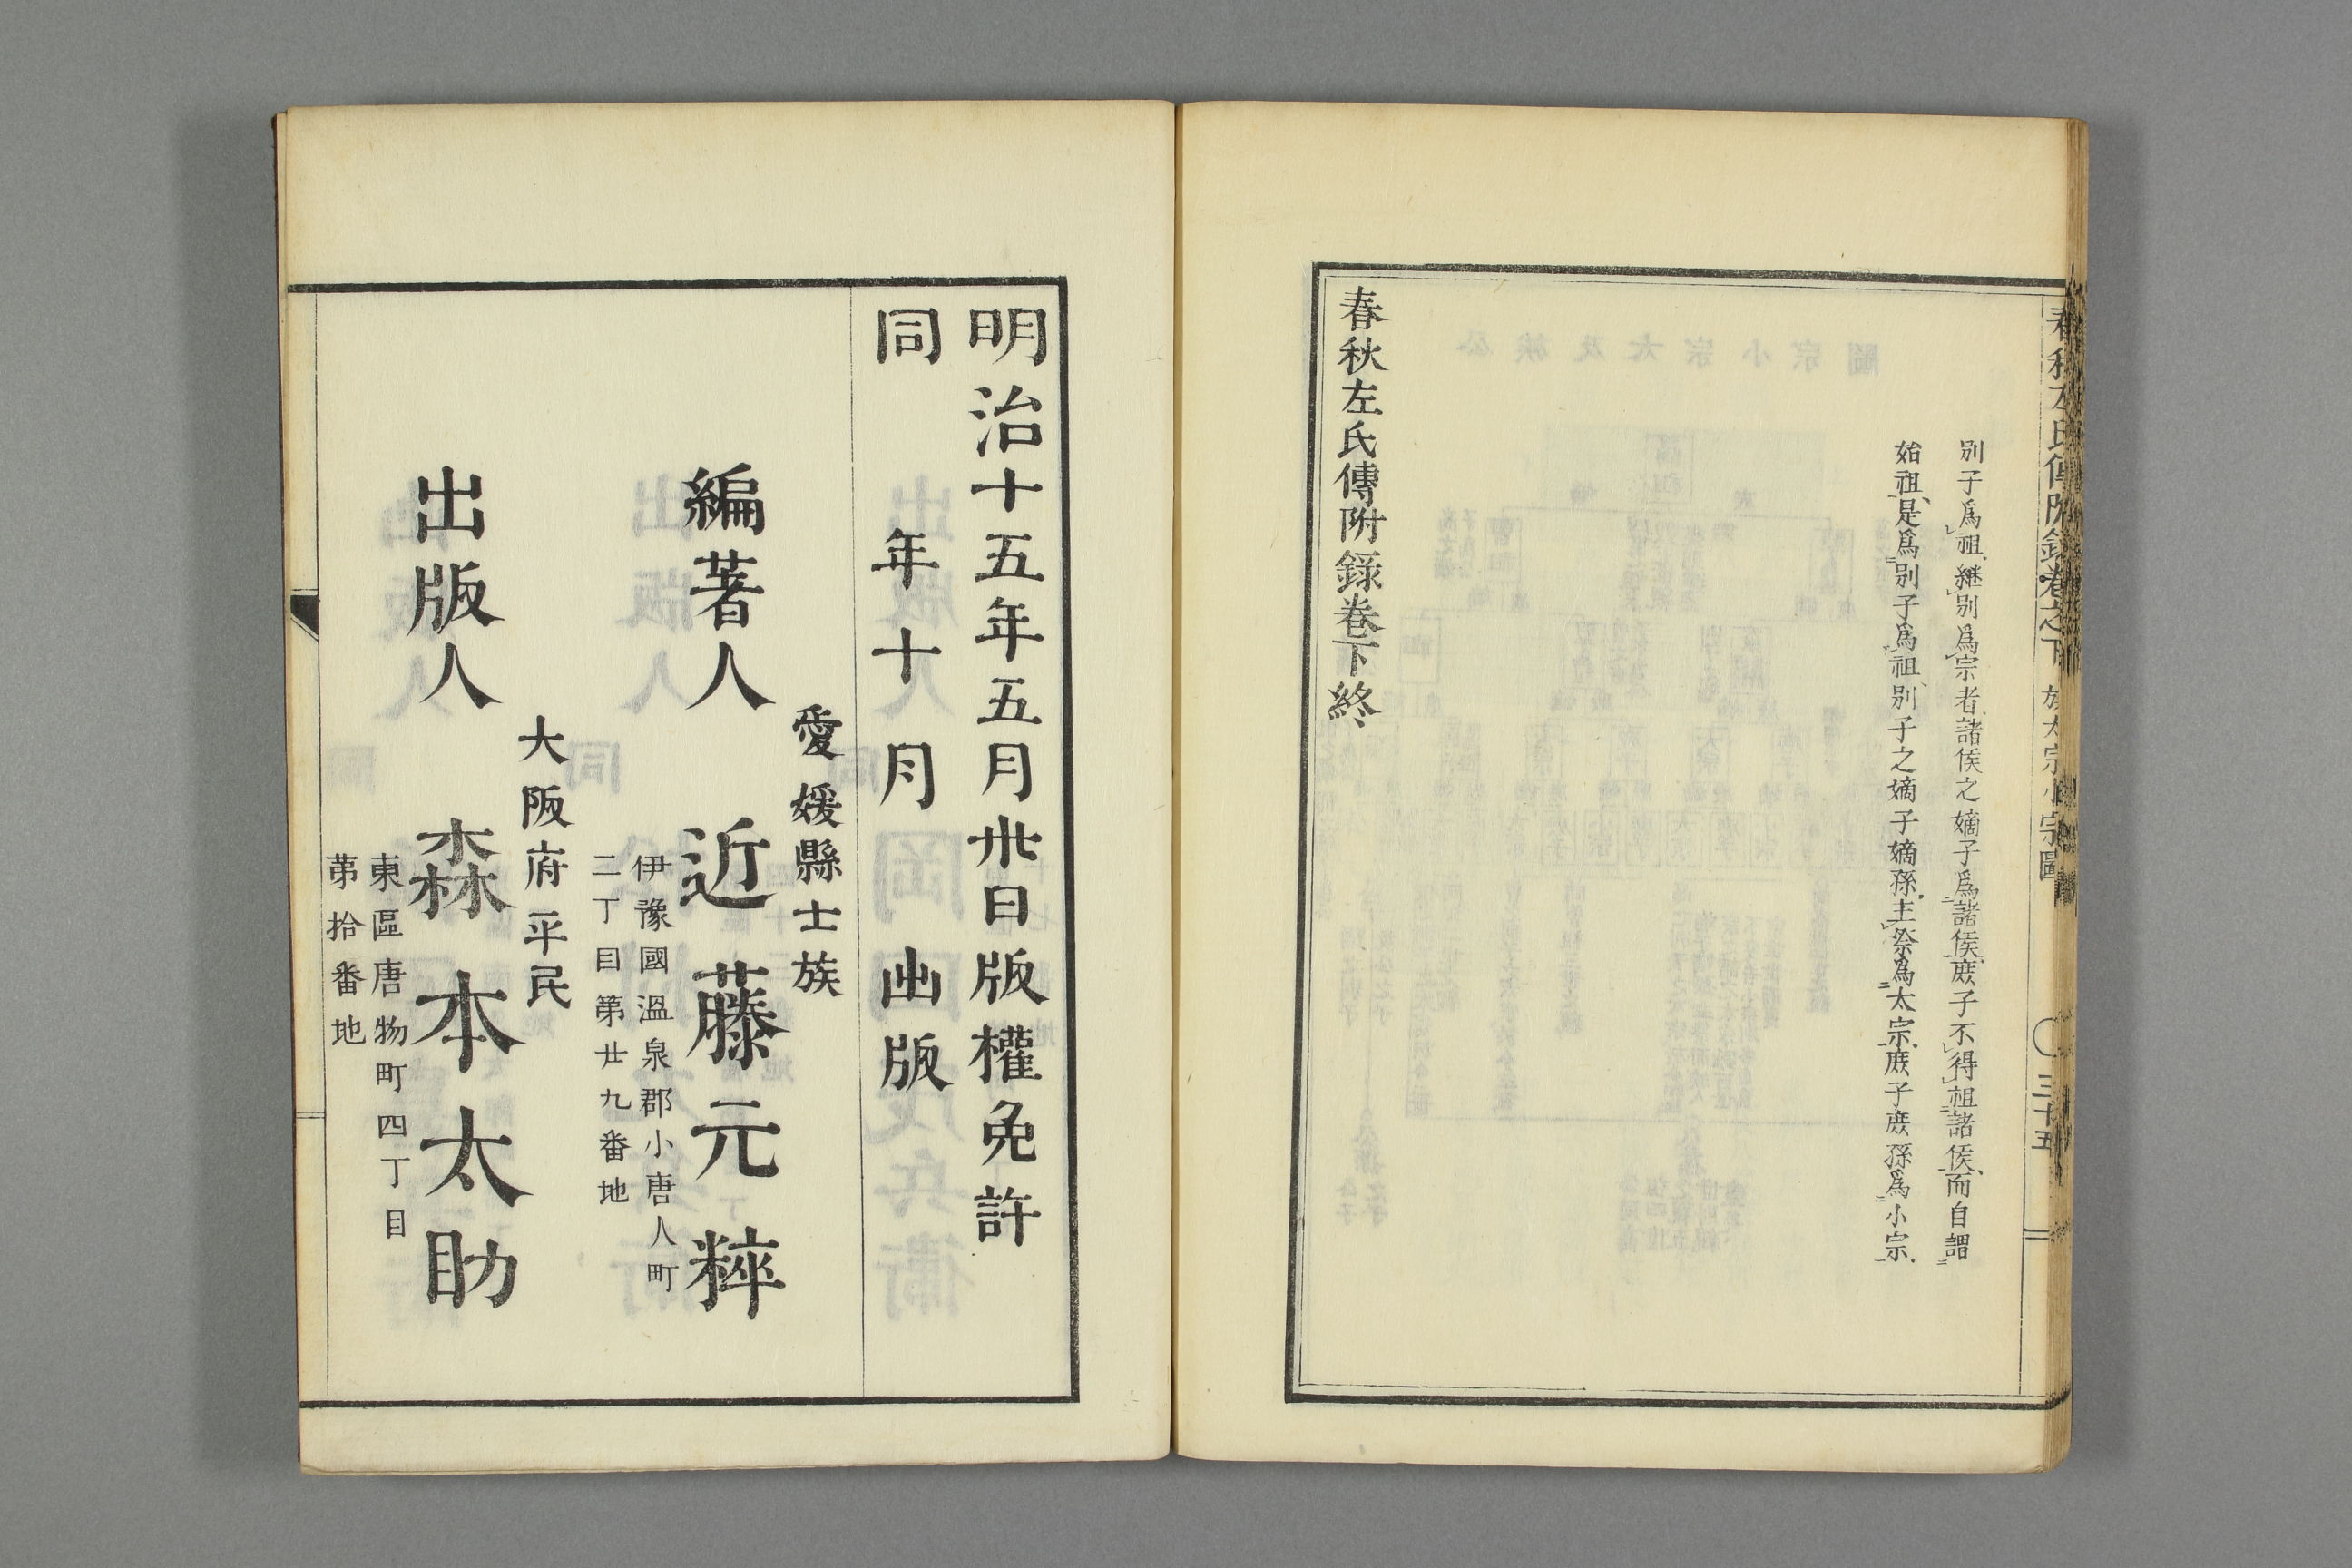 春秋左氏傳附錄卷之下 族大宗小宗圖 〇三十五
別子爲祖、継別爲宗者諸侯之嫡子爲諸侯、庶子不得祖諸侯、而自謂
始祖、是爲別子爲祖、別子之嫡子嫡孫、主祭爲太宗、庶子庶孫爲小宗、
春秋左氏傳附錄卷下終
明治十五年五月卅日版權免許
同 年十月 出版
愛媛縣士族
編著人 近藤元粹
伊豫國溫泉郡小唐人町
二丁目第廿九番地
大阪府平民
出版人 森本太助
東區唐物町四丁目
第拾番地